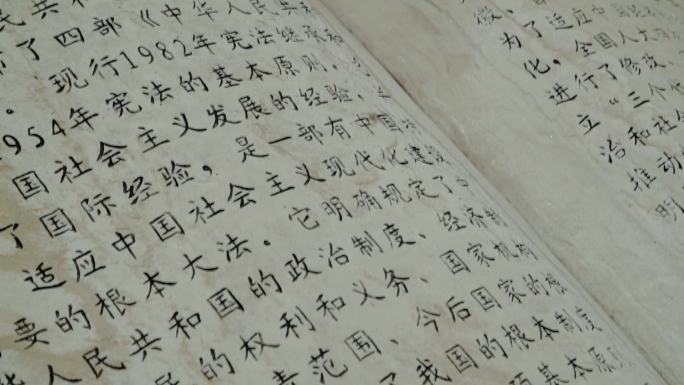 民共和
了四部《中华人民共和
。现行1982年宪法
954年宪法的基本原则,
国社会主义发展的经验,
了国际经验,是一部有中国
适应中国社会主义现代化建设
要的根本大法。它明确规定了中
人民共和国的政治制度、经济制
的权利和义务、国家机构
责范围、今后国家的根
了我国的根本制度
基本原则
为了适应中国
化,全国人大
进行了修改、
立“三个代
治和社会
推动
明